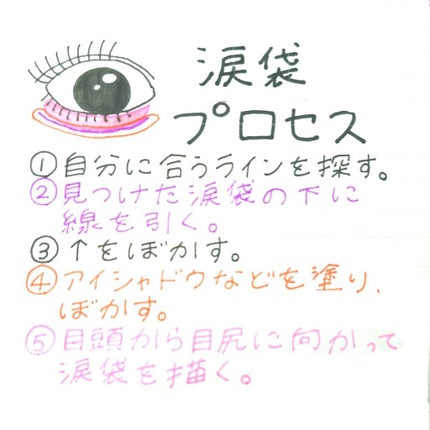 涙袋
プロセス
①自分に合うラインを探す。
②見つけた涙袋の下に
線を引く。
③↑をぼかす。
④アイシャドウなどを塗り、
ぼかす。
⑤目頭から目尻に向かって
涙袋を描く。